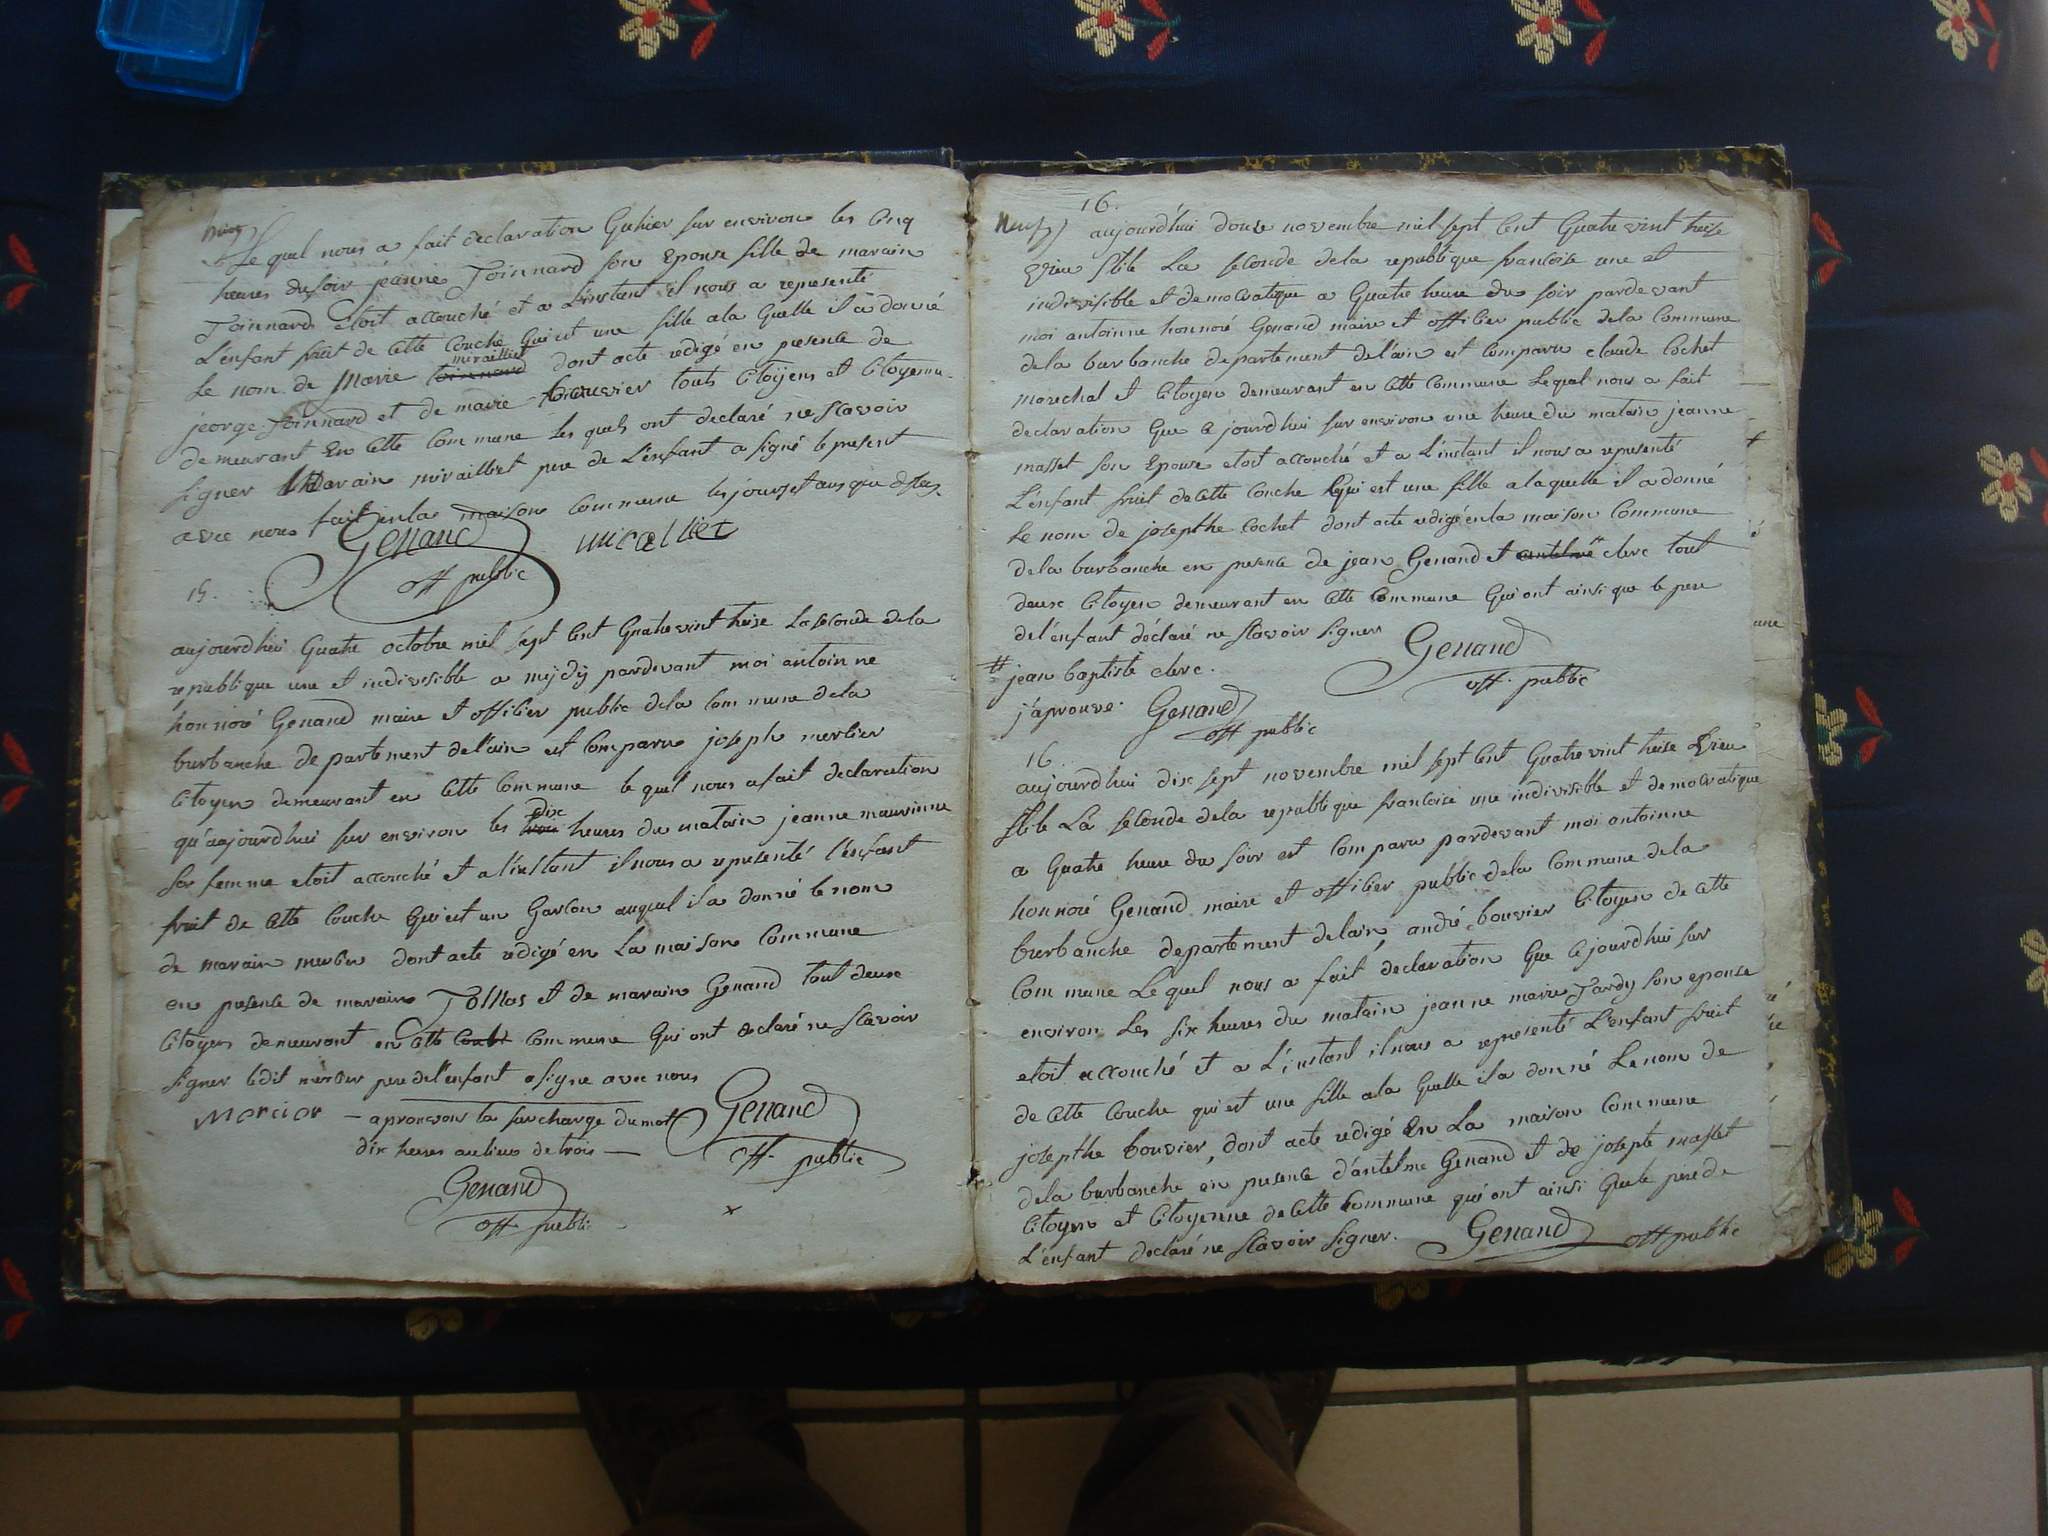 Le quel nous a fait declaration Qu'hier sur environ les cinq
heures du soir jeanne Toinnard son Epouse fille de marain
Toinnard etoit accouché et a L'instant il nous a representé
L'enfant fruit de cette Couche Qui est une fille ala Quelle il a donné
le nom de Marie toinnard miralliet dont acte redigé en presence de
jeorge Toinnard et de marie bouvier touts Citoyens et Citoyenne
demeurant En Cette Commune les quels ont declaré ne sçavoir
signer Marain miralliet pere de L'enfant a signé le present
avec nous fait en la maison commune les jours et ans que dessus
Genand miralliet
off public
15.
aujourd'hui Quatre octobre mil sept cent Quatre vint treise La seconde de la
republique une et indivisible a mydy pardevant moi antoinne
honnoré Genand maire et officier public dela Commune dela
burbanche departement de l'ain est Comparu joseph mercier
Citoyen demeurant en Cette Commune le quel nous a fait declaration
qu'aujourd'hui sur environ les trois dix heures du matain jeanne maurinne
sa femme etoit accouché et a l'instant il nous a representé l'enfant
fruit de Cette Couche Qui est un Garcon auquel il a donné le nom
de marain mercier dont acte redigé en La maison Commune
en presence de marain Tollas et de marain Genand tout deux
Citoyens demeurant en Cette Commune Qui ont declaré ne sçavoir
signer ledit mercier pere de l'enfant a signé avec nous
Morcior — aprouvons la surcharge du mot Genand
dix heures au lieu de trois — off. public
Genand
off public
x
neuf 16.
aujourd'hui douse novembre mil sept cent Quatre vint treise
vieu stile La seconde dela republique francoise une et
indivisible et democratique a Quatre heure du soir pardevant
moi antoinne honnoré Genand maire et officier public dela Commune
dela burbanche departement de l'ain est Comparu claude Cochet
marechal et Citoyen demeurant en Cette Commune Lequel nous a fait
declaration Que ce jourd'hui sur environ une heure du matain jeanne
masset son Epouse etoit accouché et a L'instant il nous a representé
L'enfant fruit de Cette Couche Qui est une fille a laquelle il a donné
Le nom de josepthe cochet dont acte redigé en la maison Commune
dela burbanche en presence de jean Genand et antelme # clerc tout
deux Citoyen demeurant en Cette Commune Qui ont ainsi que le pere
de l'enfant déclaré ne sçavoir signer Genand
# jean baptiste clerc. off. public
j'aprouve. Genand
off public
16
aujourd'hui dix sept novembre mil sept cent Quatre vint treise vieu
stile La seconde dela republique francoise une indivisible et democratique
a Quatre heure du soir est Comparu pardevant moi antoinne
honnoré Genand maire et officier public dela Commune dela
burbanche departement delain andré bouvier Citoyen de Cette
Commune Lequel nous a fait déclaration Que ce jourd'hui sur
environ Les six heures du matain jeanne marie Tardy son epouse
etoit accouché et a L'instant il nous a representé L'enfant fruit
de Cette Couche qui est une fille ala Quelle il a donné Le nom de
josepthe bouvier, dont acte redigé En La maison Commune
dela burbanche en presence d'antelme Genand et de josepte masset
Citoyen et Citoyenne de Cette Commune qui ont ainsi Que le pere de
L'enfant declaré ne sçavoir signer. Genand off public